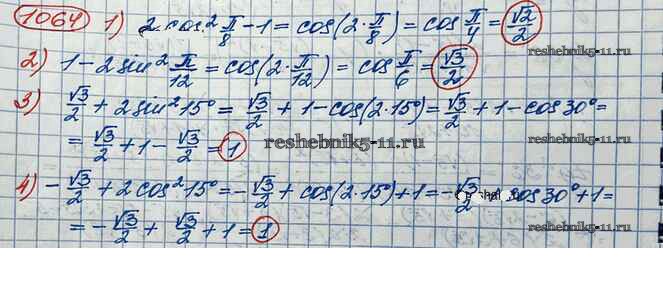 1064 1) 2cos² π/8 - 1 = cos(2·π/8) = cos π/4 = √2/2
reshebnik5-11.ru
2) 1 - 2sin² π/12 = cos(2·π/12) = cos π/6 = √3/2
3) √3/2 + 2sin²15° = √3/2 + 1 - cos(2·15°) = √3/2 + 1 - cos30° =
= √3/2 + 1 - √3/2 = 1 reshebnik5-11.ru
4) -√3/2 + 2cos²15° = -√3/2 + cos(2·15°) + 1 = -√3/2 cos30° + 1 =
= -√3/2 + √3/2 + 1 = 1
reshebnik5-11.ru